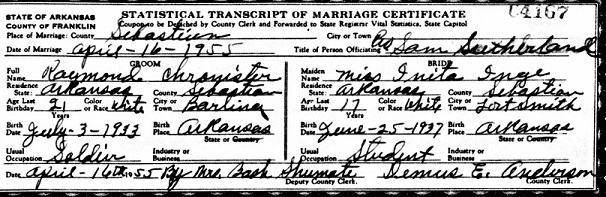 STATE OF ARKANSAS
COUNTY OF FRANKLIN
STATISTICAL TRANSCRIPT OF MARRIAGE CERTIFICATE
04167
Coupon to be Detached by County Clerk and Forwarded to State Registrar Vital Statistics, State Capitol
Place of Marriage: County Sebastian City or Town
Date of Marriage April-16-1955 Title of Person Officiating Sam Sutherland
GROOM BRIDE
Full Name Raymond Chronister Maiden Name Miss Inita Inge
Residence State: Arkansas County Sebastian Residence State: Arkansas County Sebastian
Age Last Birthday 21 Years Color or Race White City or Town Barling Age Last Birthday 17 Years Color or Race White City or Town Fort Smith
Birth Date July-3-1933 Birth Place Arkansas State or Country Birth Date June-25-1937 Birth Place Arkansas State or Country
Usual Occupation Soldier Industry or Business Usual Occupation Student Industry or Business
Date April-16th 1955 By Mrs. Bash Shumate Deputy County Clerk. Demus E. Anderson County Clerk.